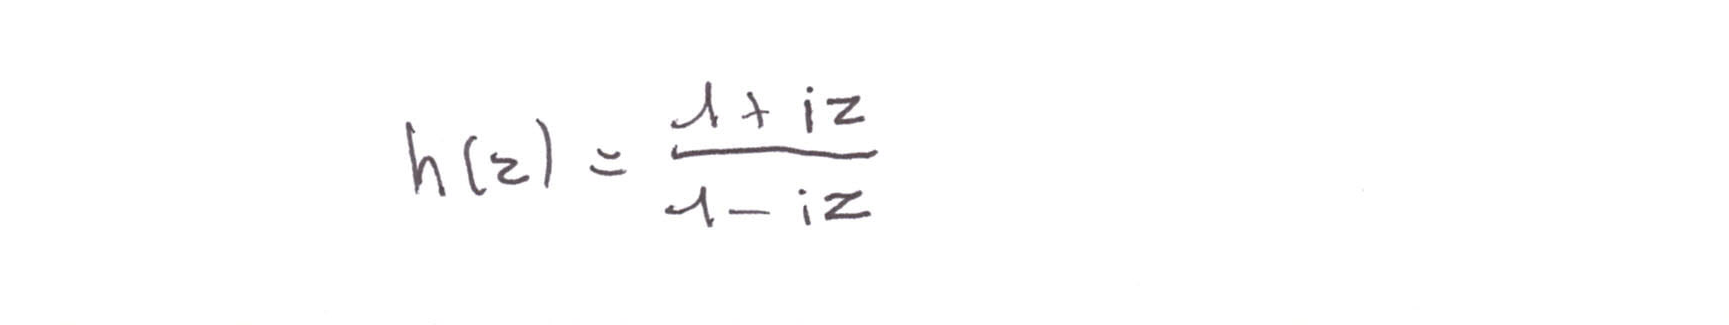 h(z) = \frac{1 + iz}{1 - iz}